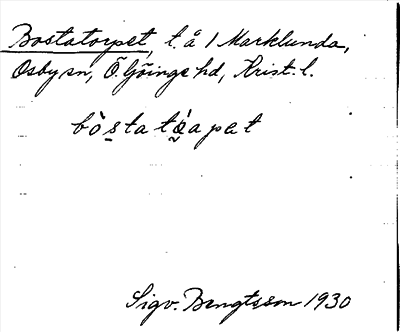 Bostatorpet, t. å 1 Marklunda,
Osby sn, Ö. Göinge hd, Krist. l.
bòstatòapet
Sigv. Bengtsson 1930